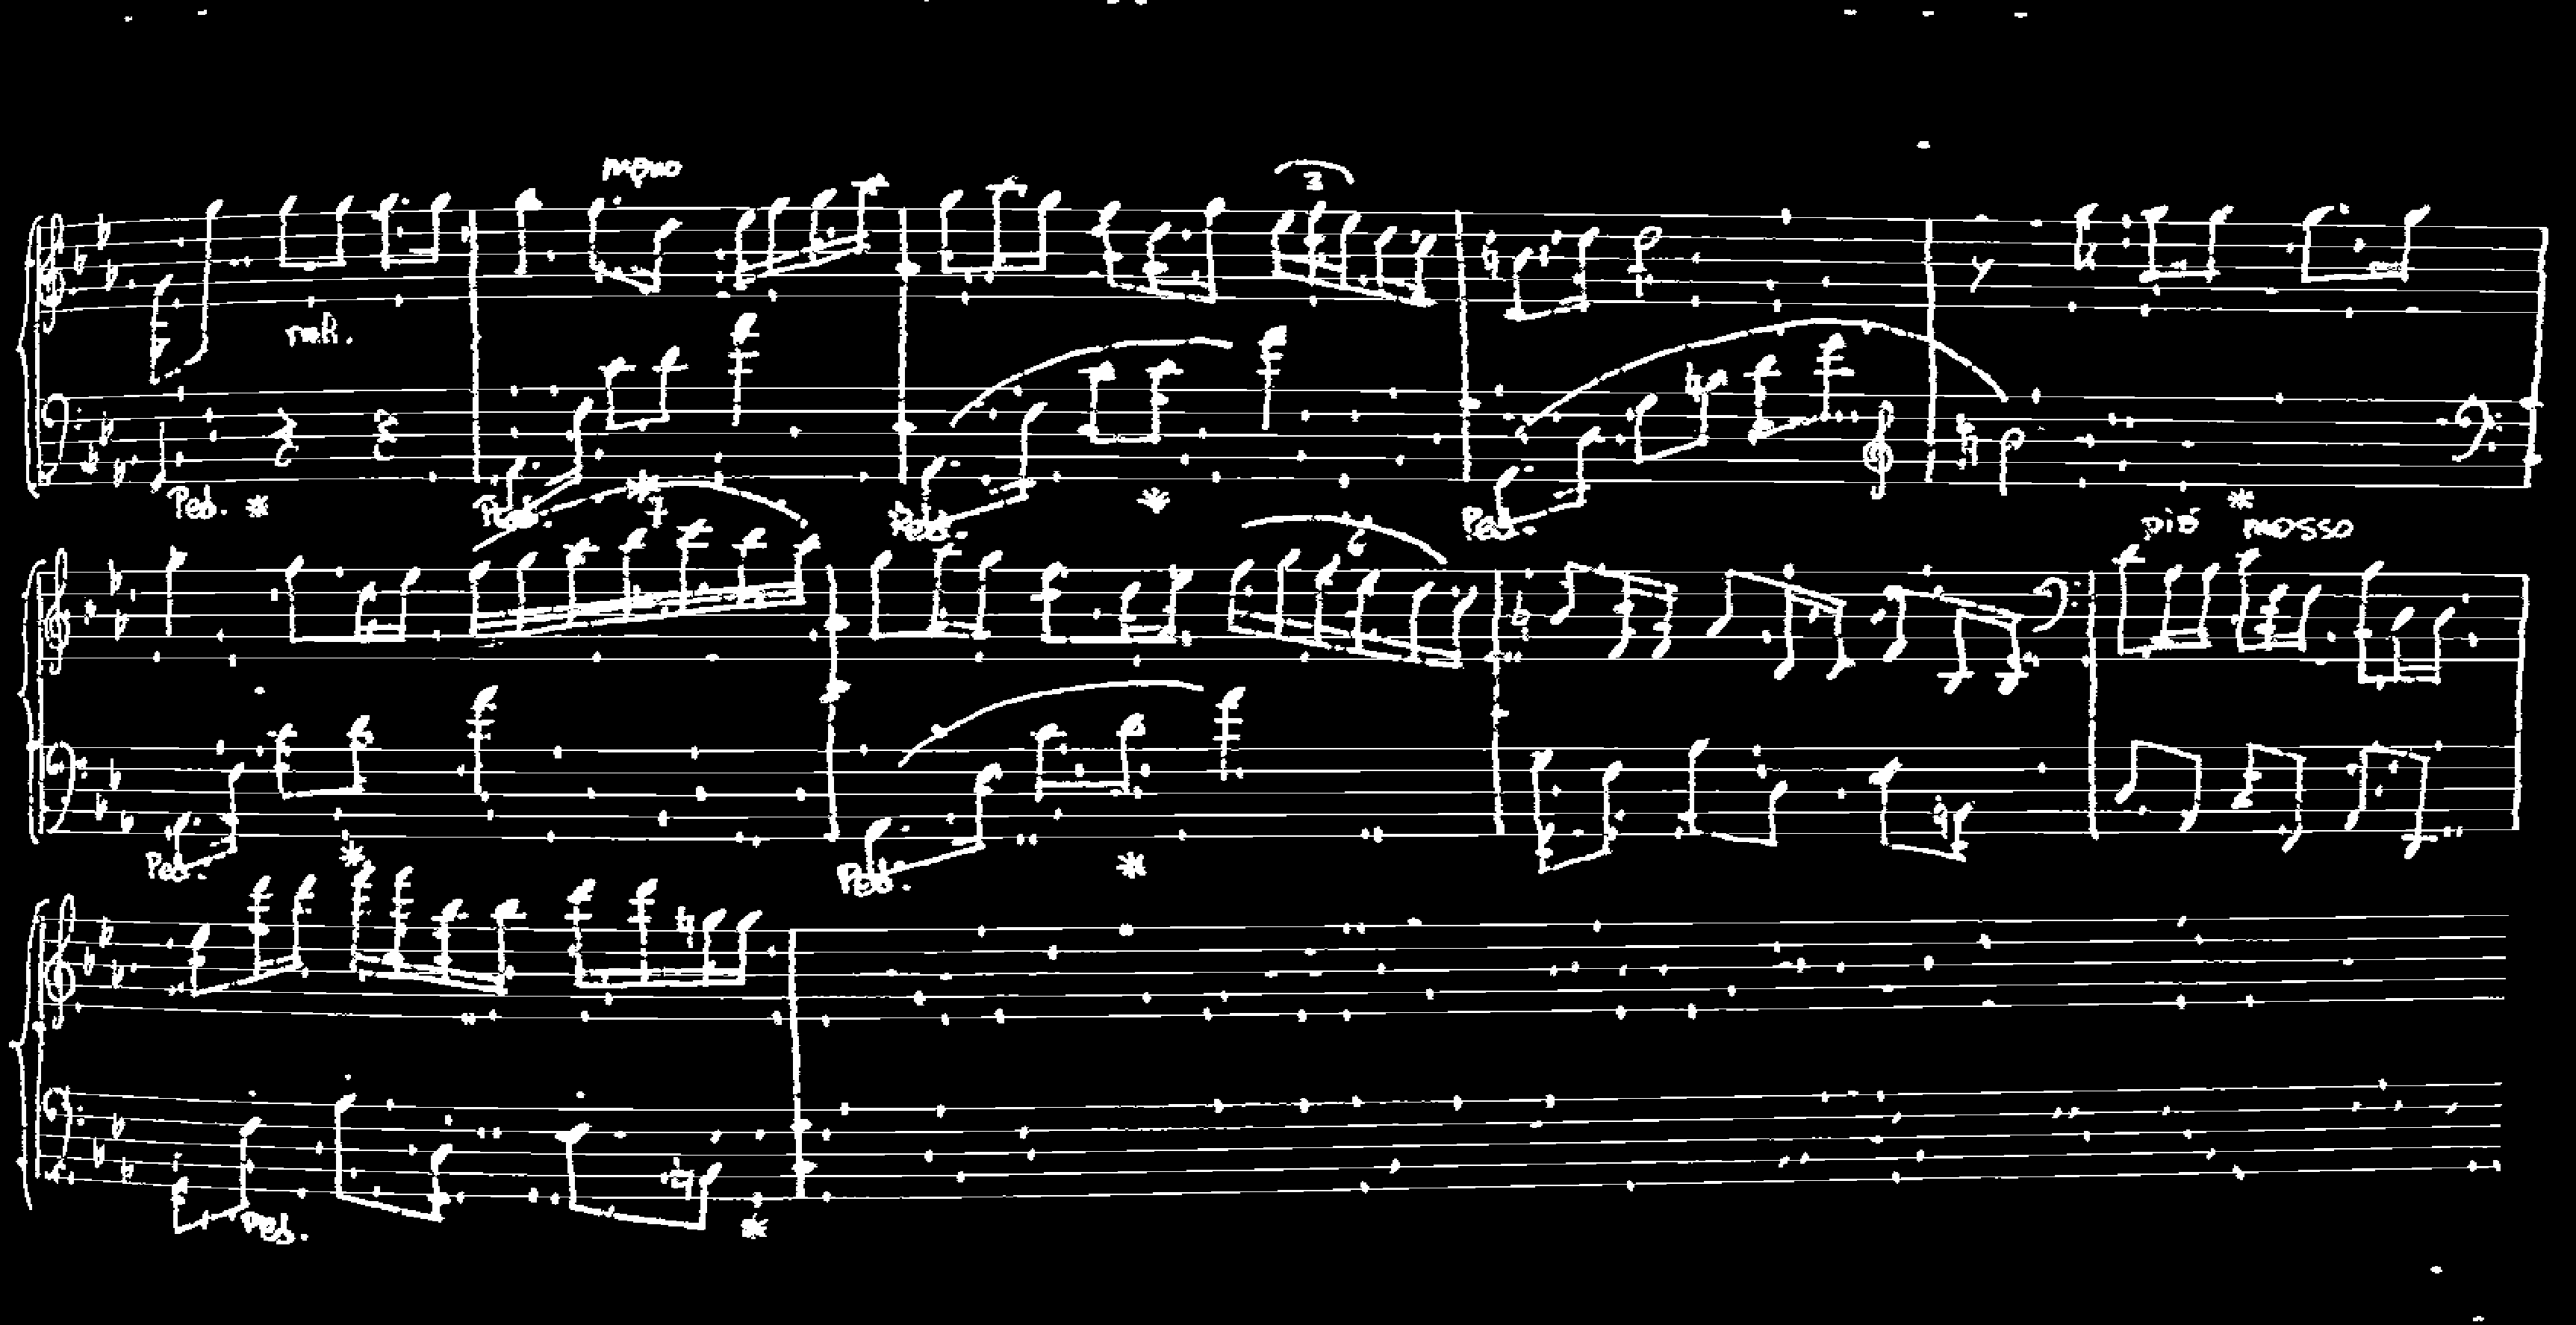 meno
3
rall.
Ped. * Ped. * Ped. * Ped. *
7 6 più mosso
Ped. * Ped. *
Ped. *